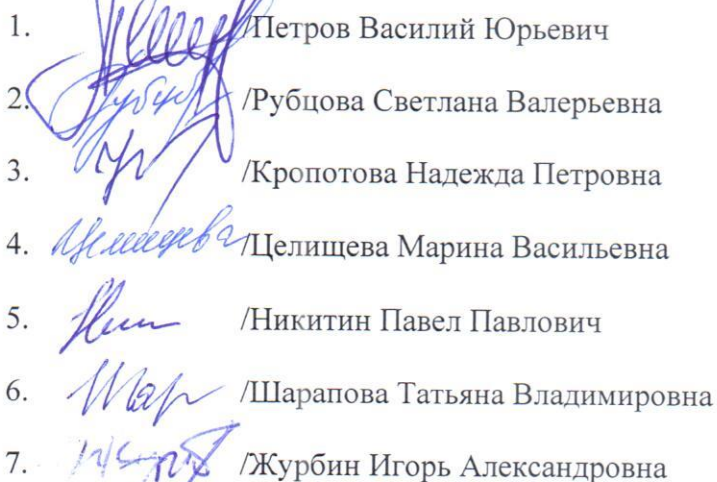 1. /Петров Василий Юрьевич
2. Рубцо /Рубцова Светлана Валерьевна
3. /Кропотова Надежда Петровна
4. Целищева /Целищева Марина Васильевна
5. /Никитин Павел Павлович
6. Шар /Шарапова Татьяна Владимировна
7. /Журбин Игорь Александровна